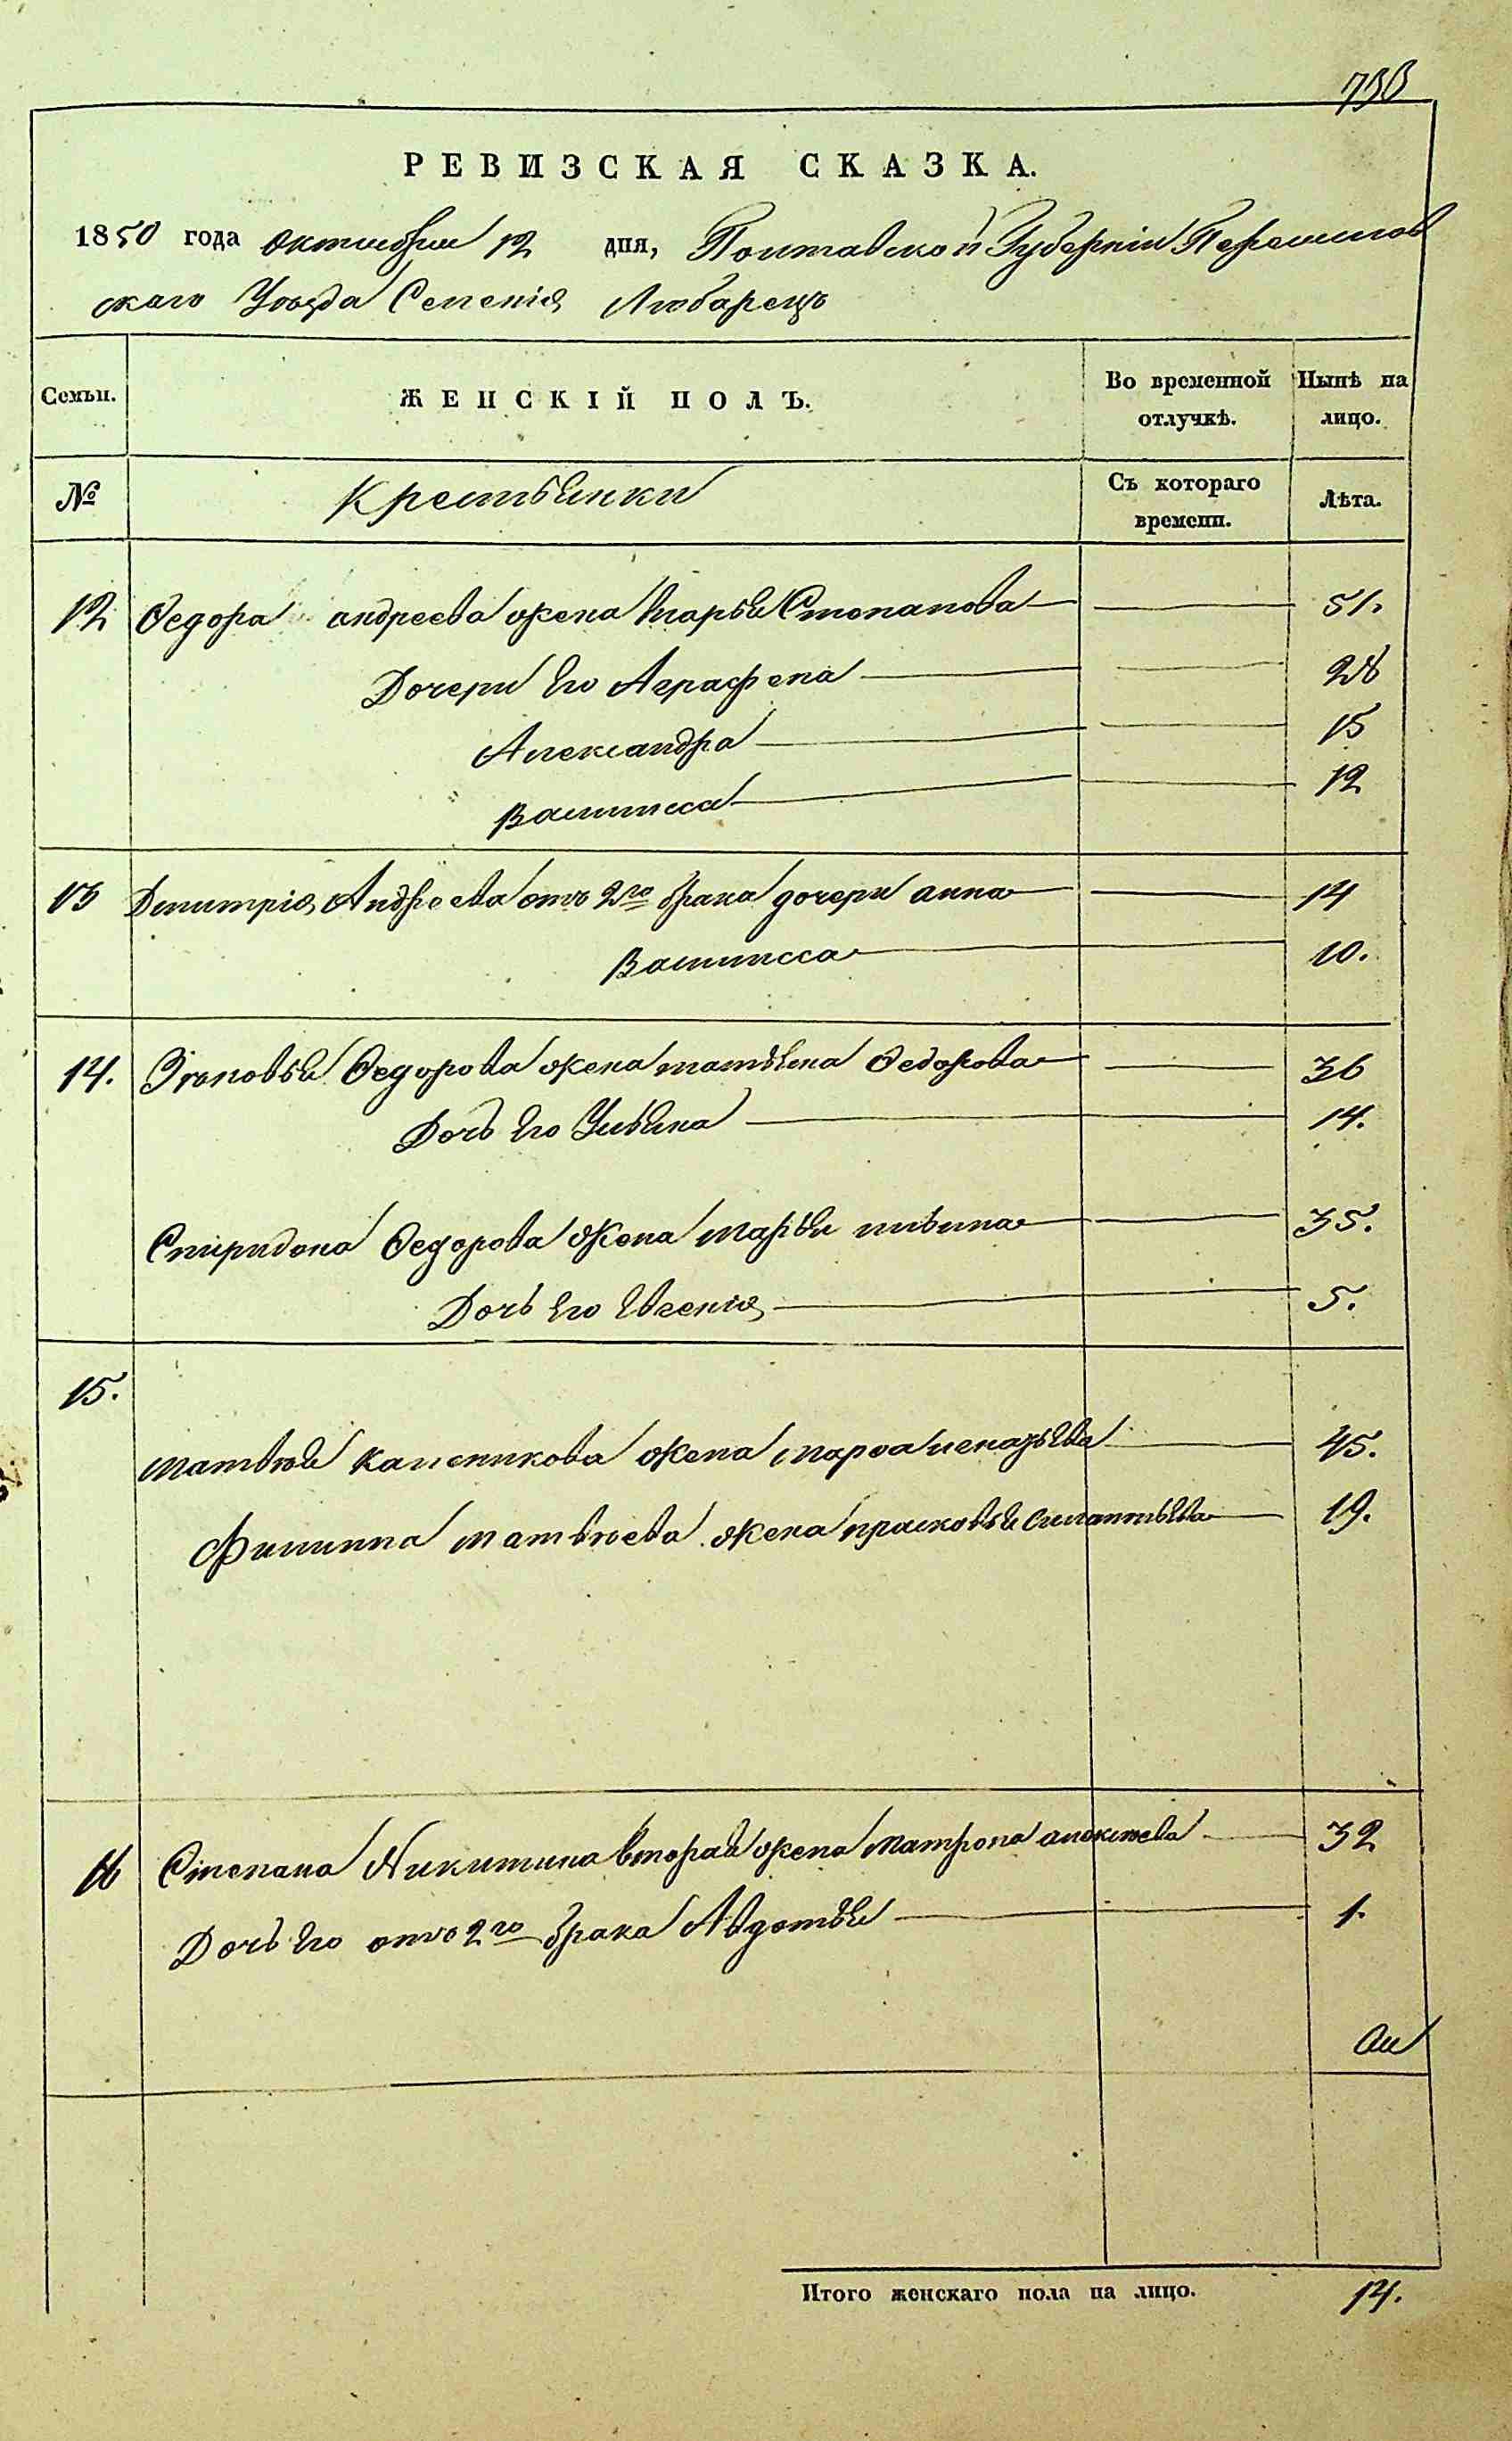 733
РЕВИЗСКАЯ СКАЗКА.
1850 года октября 12 дня, Полтавской Губерніи
скаго Уезда Селенія Любарецъ
Семьи. ЖЕНСКІЙ ПОЛЪ. Во временной отлучкѣ. Нынѣ на лицо.
№ Крестьянки Съ котораго времени. Лѣта.
12 Ѳедора андреева жена марья Степанова 51.
Дочери Его Аграфена 28
Александра 15
Василисса 12
13 Дмитрія Андреева отъ 2го брака дочери анна 14
Василисса 10.
14. Зѣновья Ѳедорова жена татьяна Ѳедорова 36
Дочь Его Ульяна 14.
Спиридона Ѳедорова жена марья ильина 35.
Дочь Его Евгенія 5.
15.
матвѣя жена марѳа 45.
Филиппа матвѣева жена прасковья Силантьева 19.
16 Степана Никитина вторая жена матрона алексѣева 32
Дочь Его отъ 2го брака Авдотья 1.
Итого женскаго пола на лицо. 14.